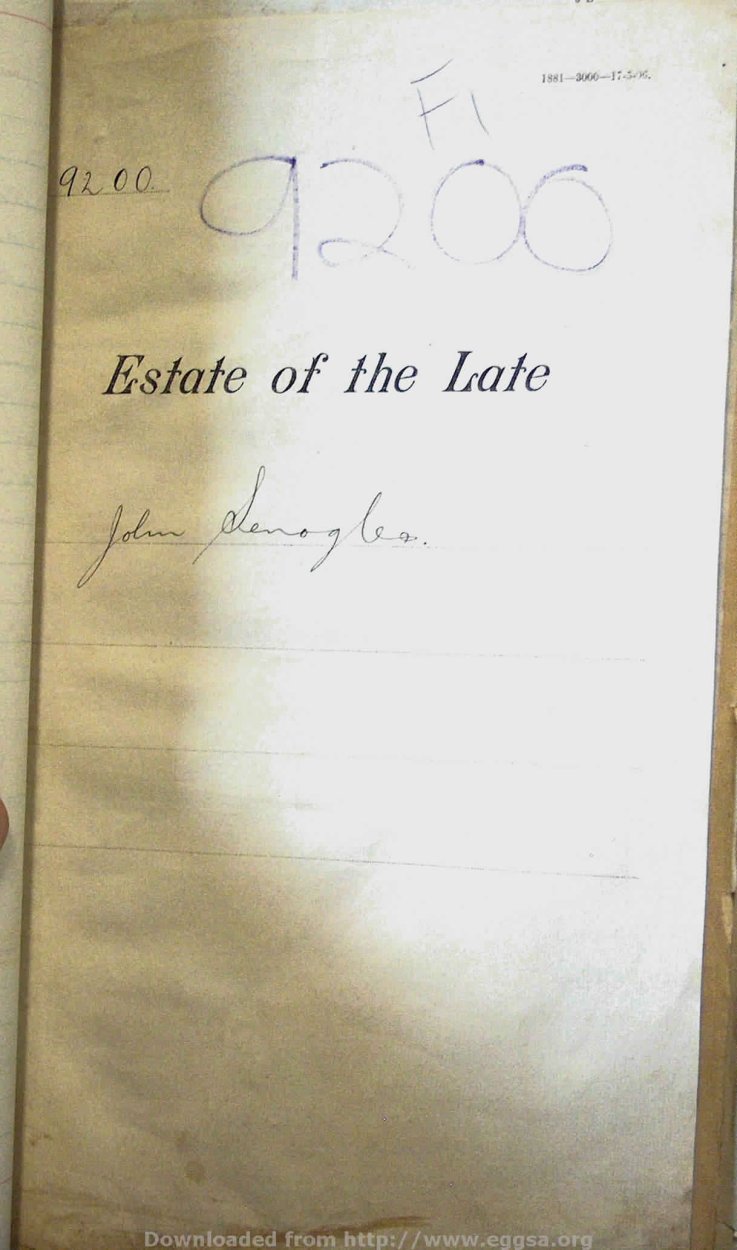 1881—3000—17-5-06.
F1
9200.
9200
Estate of the Late
John Senogles.
Downloaded from http://www.eggsa.org